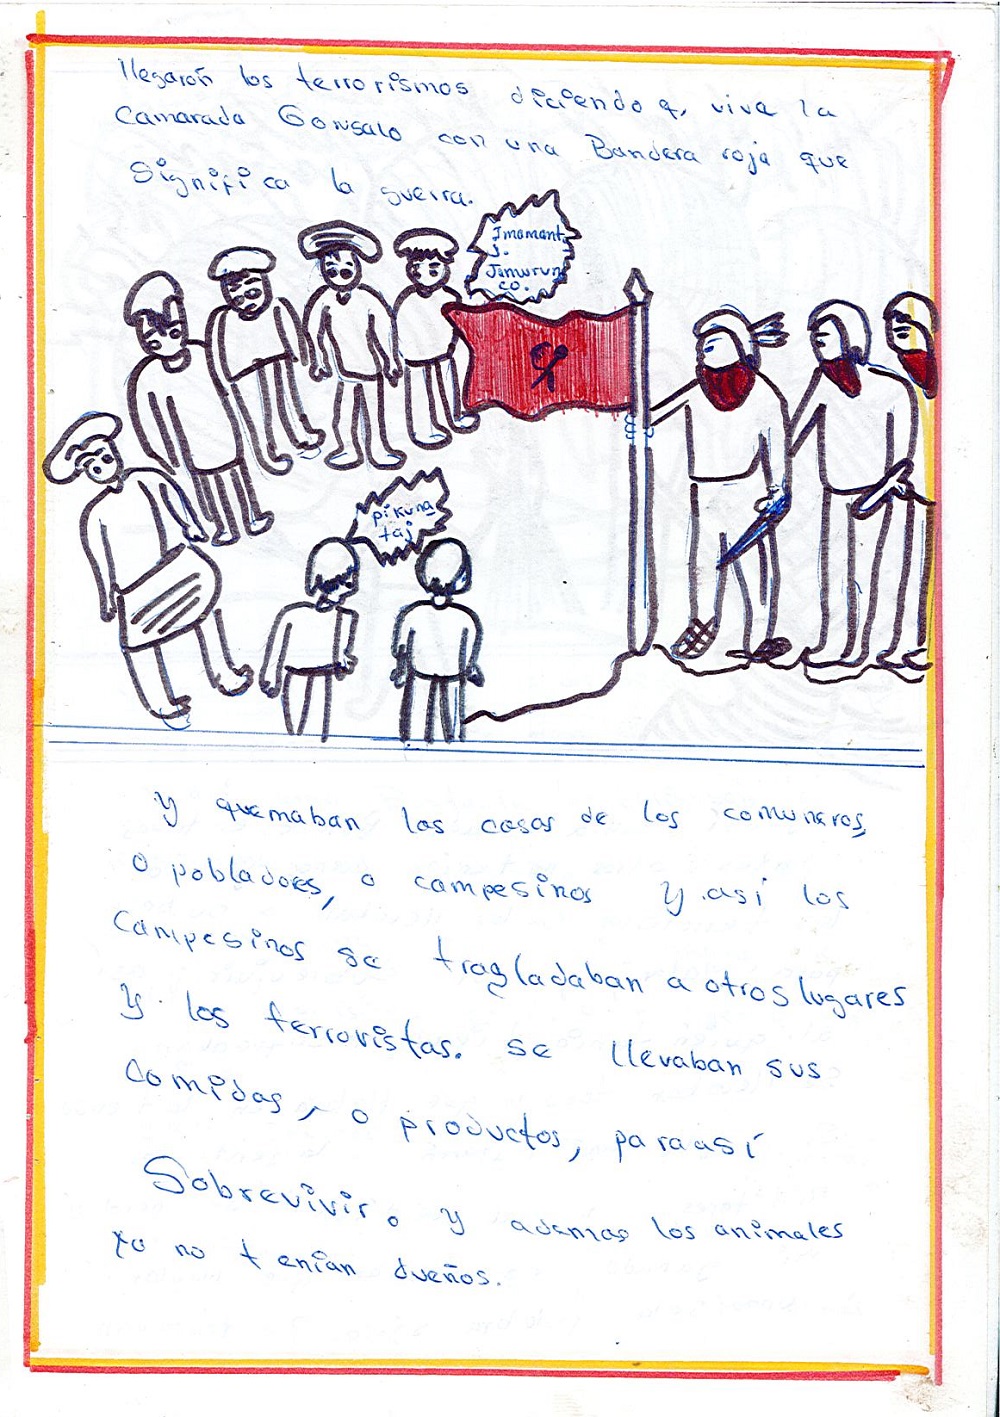 llegarón los terrorismos diciendo q, viva la
Camarada Gonsalo con una Bandera roja que
Significa la guerra.
Imamant
s.
Jamurun
co.
pikuna
taj
Y quemaban las casas de los comuneros,
o pobladores, o campesinos y así los
Campesinos se trasladaban a otros lugares
Y los terroristas. se llevaban sus
comidas, o productos, para así
Sobrevivir. y ademas los animales
ya no tenían dueños.